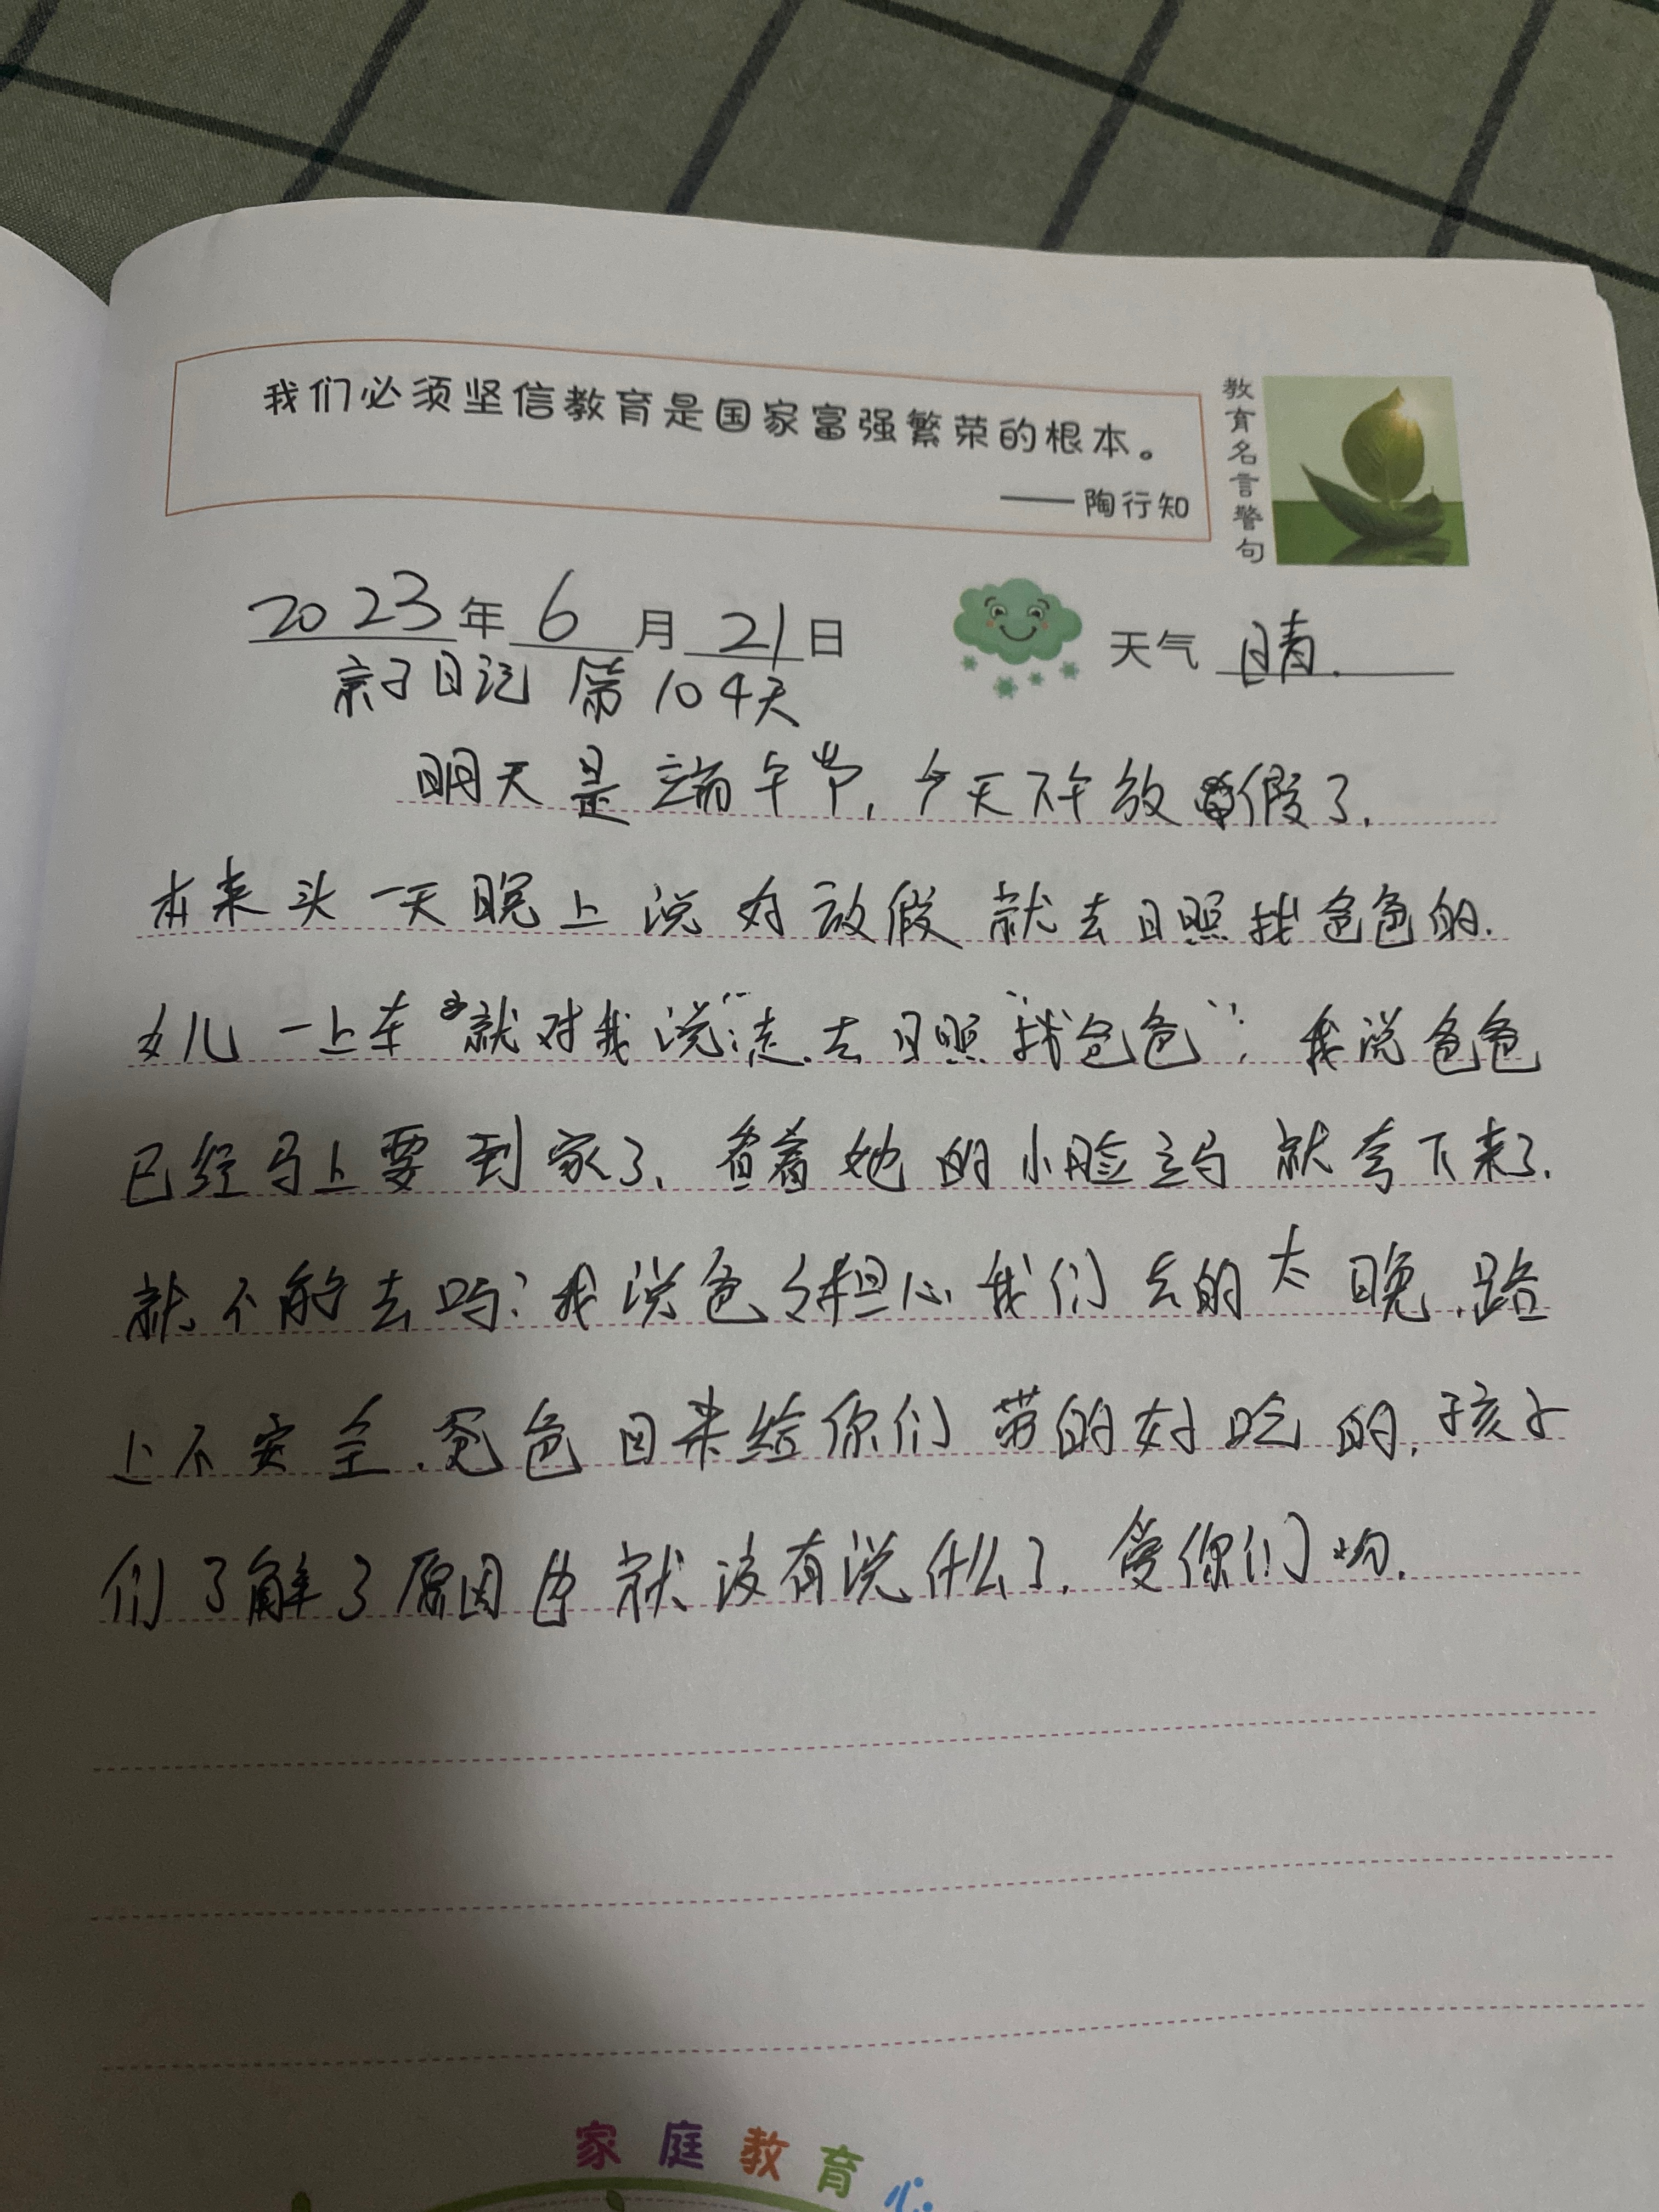 我们必须坚信教育是国家富强繁荣的根本。
——陶行知
教育名言警句
2023年6月21日
天气 晴.
亲子日记 第104天
明天是端午节,今天下午放假了.
本来头一天晚上说好放假就去日照找爸爸的.
女儿一上车就对我说:“走.去日照找爸爸”; 我说爸爸
已经马上要到家了.看着她的小脸立马就拿下来了.
就不能去吗?我说爸爸担心我们去的太晚.路
上不安全.爸爸回来给你们带的好吃的.孩子
们了解了原因也就没有说什么了.爱你们哟.
家庭教育心